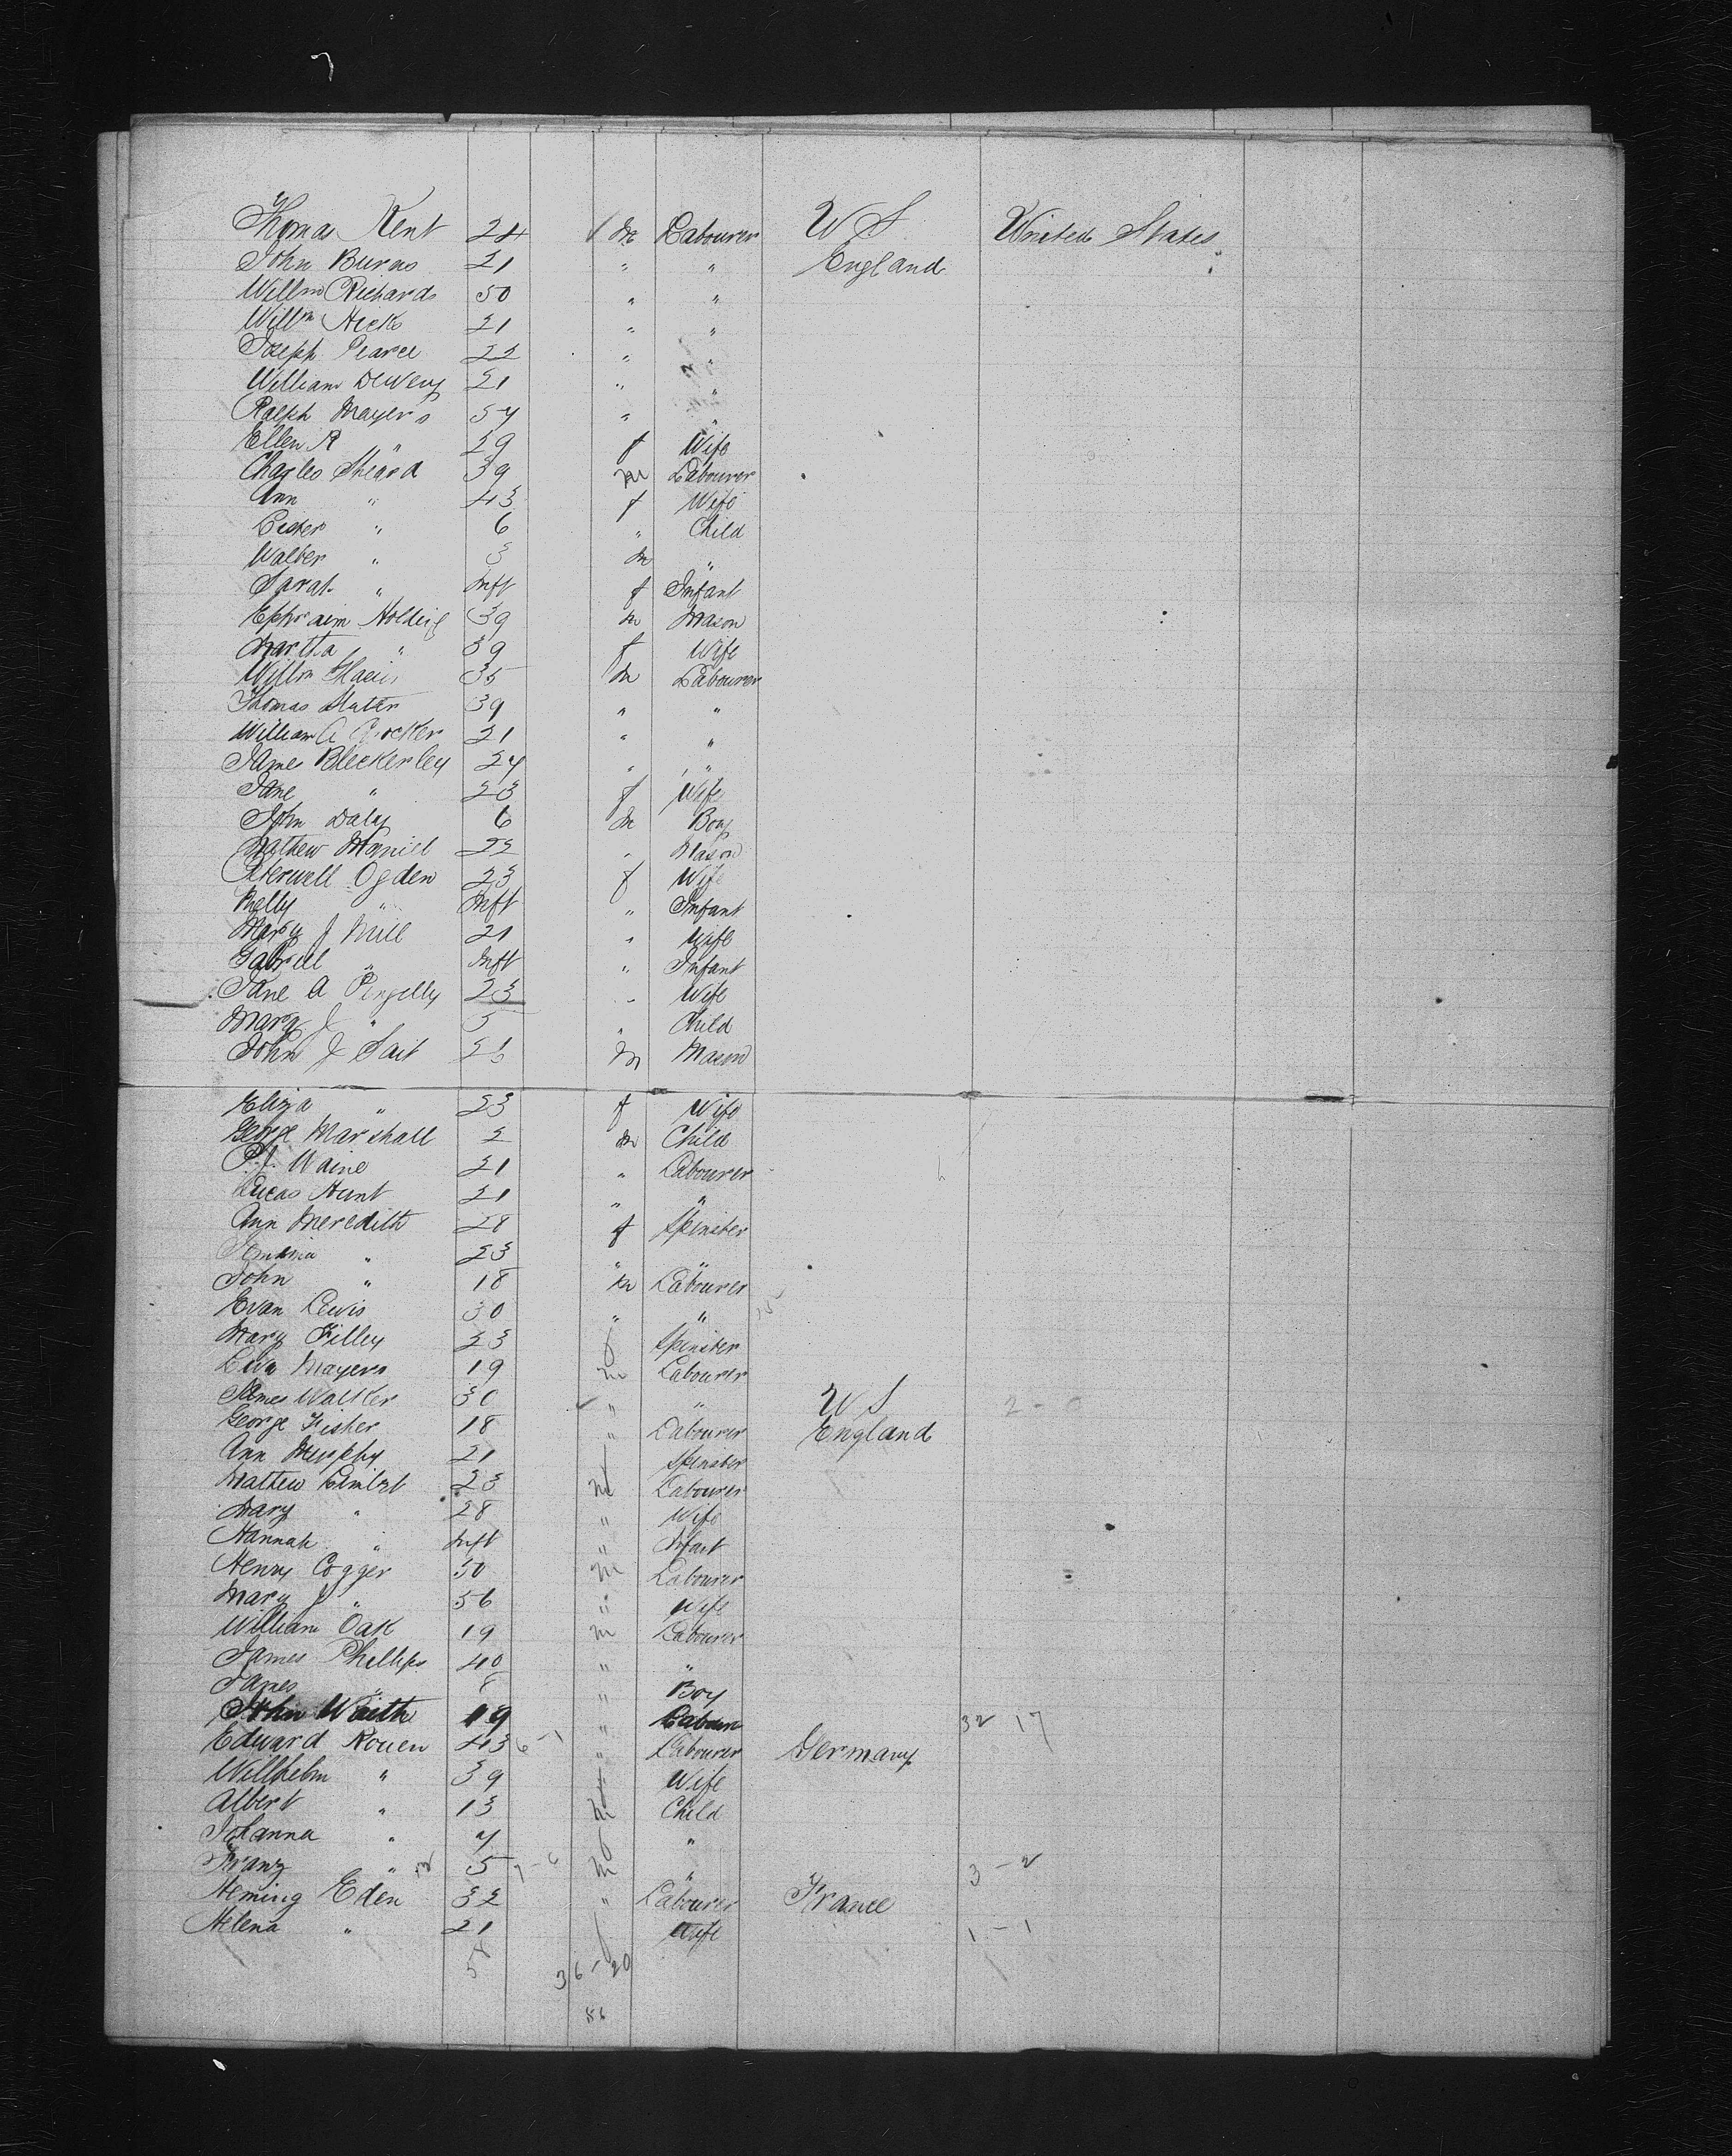 Thomas Kent 24 m Labourer U S United States
John Burns 21 " " England
Willm Richards 50 " "
Willm Hicks 21 " "
Joseph Pearce 22 " "
William Dewey 21 " "
Ralph Mayers 54 " "
Ellen R " 29 f Wife
Charles Sheard 39 m Labourer
Ann " 43 f Wife
" 6 " Child
Walter " 3 m "
Sarah " Inft f Infant
Ephraim Holding 39 m Mason
Martha " 39 f Wife
Willm 35 m Labourer
Thomas Slater 39 " "
William A Crocker 21 " "
James Bleckerley 24 " "
Jane " 23 f Wife
John Daly 6 m Boy
Mathew 22 " Mason
Ogden 23 f Wife
Nelly " Inft " Infant
Mary J Mill 21 " Wife
Gabriel " Inft " Infant
Jane A Pengelly 23 " Wife
Mary J " 5 " Child
John J Sait m Mason
Eliza " 23 f Wife
George Marshall 2 m Child
Waine 21 " Labourer
Lucas Hunt 21 " "
Ann Meredith 28 f Spinster
" 23 " "
John " 18 m Labourer
Evan Lewis 30 " "
Mary Filley 23 f Spinster
Mayers 19 m Labourer
James Walker 30 " " U S 2 - 0
George Fisher 18 " Labourer England
Ann Murphy 21 f Spinster
Mathew 23 m Labourer
Mary " 28 " Wife
Hannah " Inft " Infant
Henry Cogger 50 m Labourer
Mary J " 56 " Wife
William Oak 19 m Labourer
James Phillips 40 " "
James " 8 " Boy
John Waith 19 " Labourer 32 17
Edward Rouen 43 6 - 1 " Labourer Germany
Willhelm " 39 f Wife
Albert " 13 m Child
Johanna " 4 f "
Franz " 5 m " 3 - 2
Heming Eden 32 " Labourer France
Helena " 21 f Wife 1 - 1
58 36 - 20